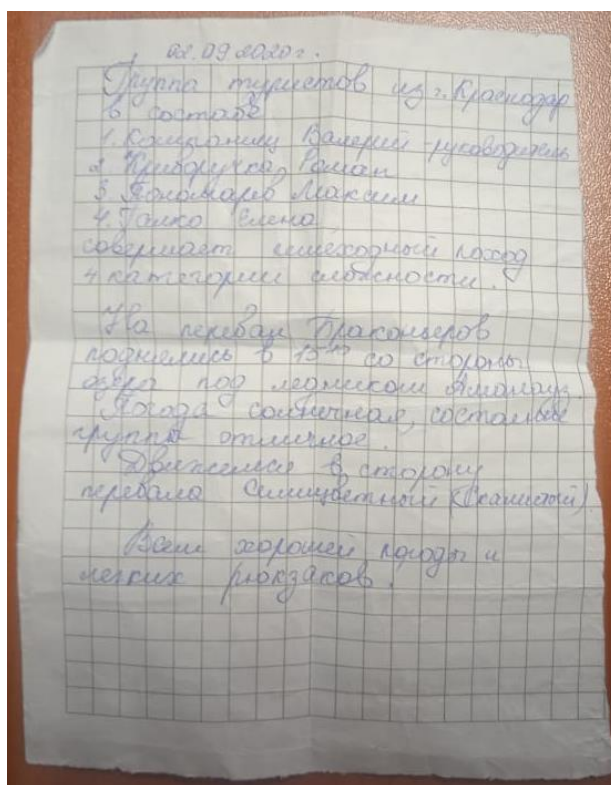 02.09.2020 г.
Группа туристов из г. Краснодар
в составе
1. Компаниец Валерий - руководитель
2. Криворучка Роман
3. Пономарёв Максим
4. Ганко Елена
совершает пешеходный поход
4 категории сложности.
На перевал Браконьеров
поднялись в 15 со стороны
озера под ледником Аманауз.
Погода солнечная, состояние
группы отличное.
Движемся в сторону
перевала Семицветный (Скалистый).
Всем хорошей погоды и
легких рюкзаков.